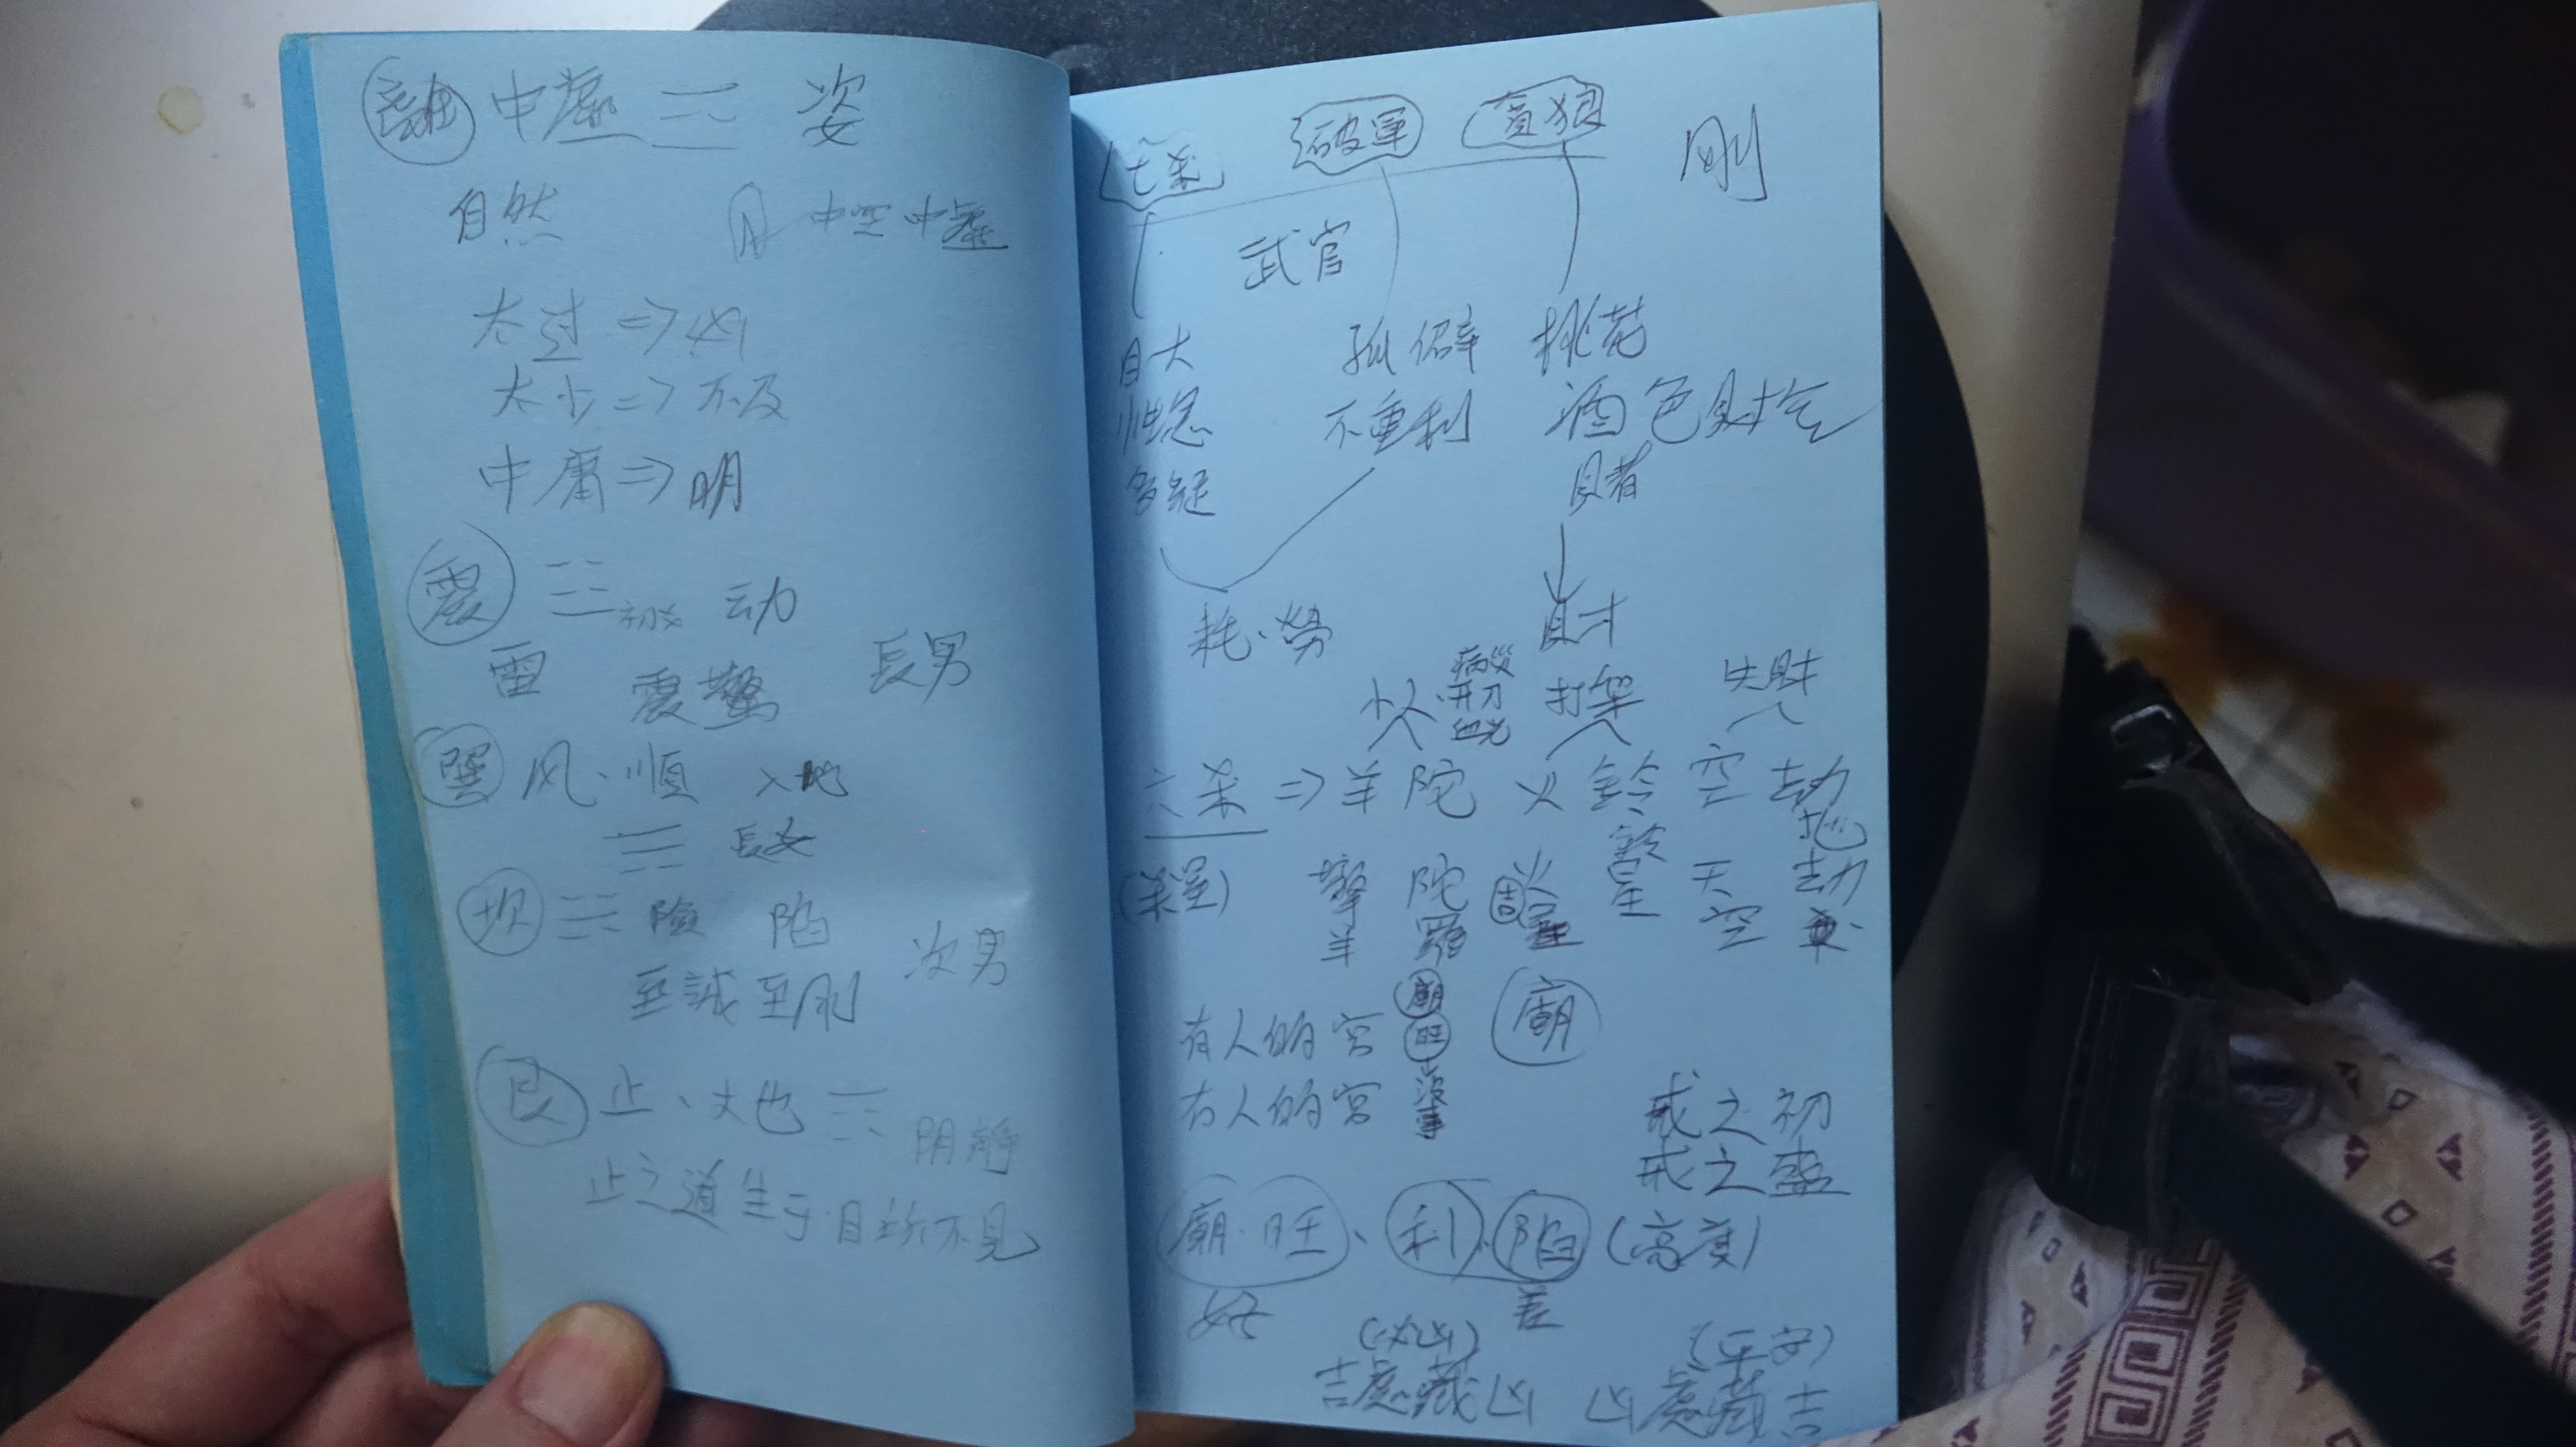 離 中虛 ☲ 姿
自然 中空中虛
太过 => 凶
太少 => 不及
中庸 => 明
震 ☳ 动
雷 震驚 長男
巽 风、順 入地
☴ 長女
坎 ☵ 險 陷
至誠至刚 次男
艮 止、丈也 ☶ 阴靜
止之道生于自所不見
七杀 破軍 貪狼 刚
武官
自大 孤僻 桃花
性急 不重利 酒色財气
多疑 貝者
耗、勞 貝才
小人 病災 开刀 血光 打架 失財
六杀 => 羊陀 火鈴 空劫
(杀星) 擎羊 陀羅 火星 鈴星 天空 地劫
有人的宮 廟 旺 没事 廟
冇人的宮
戒之初
戒之盛
廟、旺、利、陷 (高度)
好 差
吉處藏凶 凶處藏吉